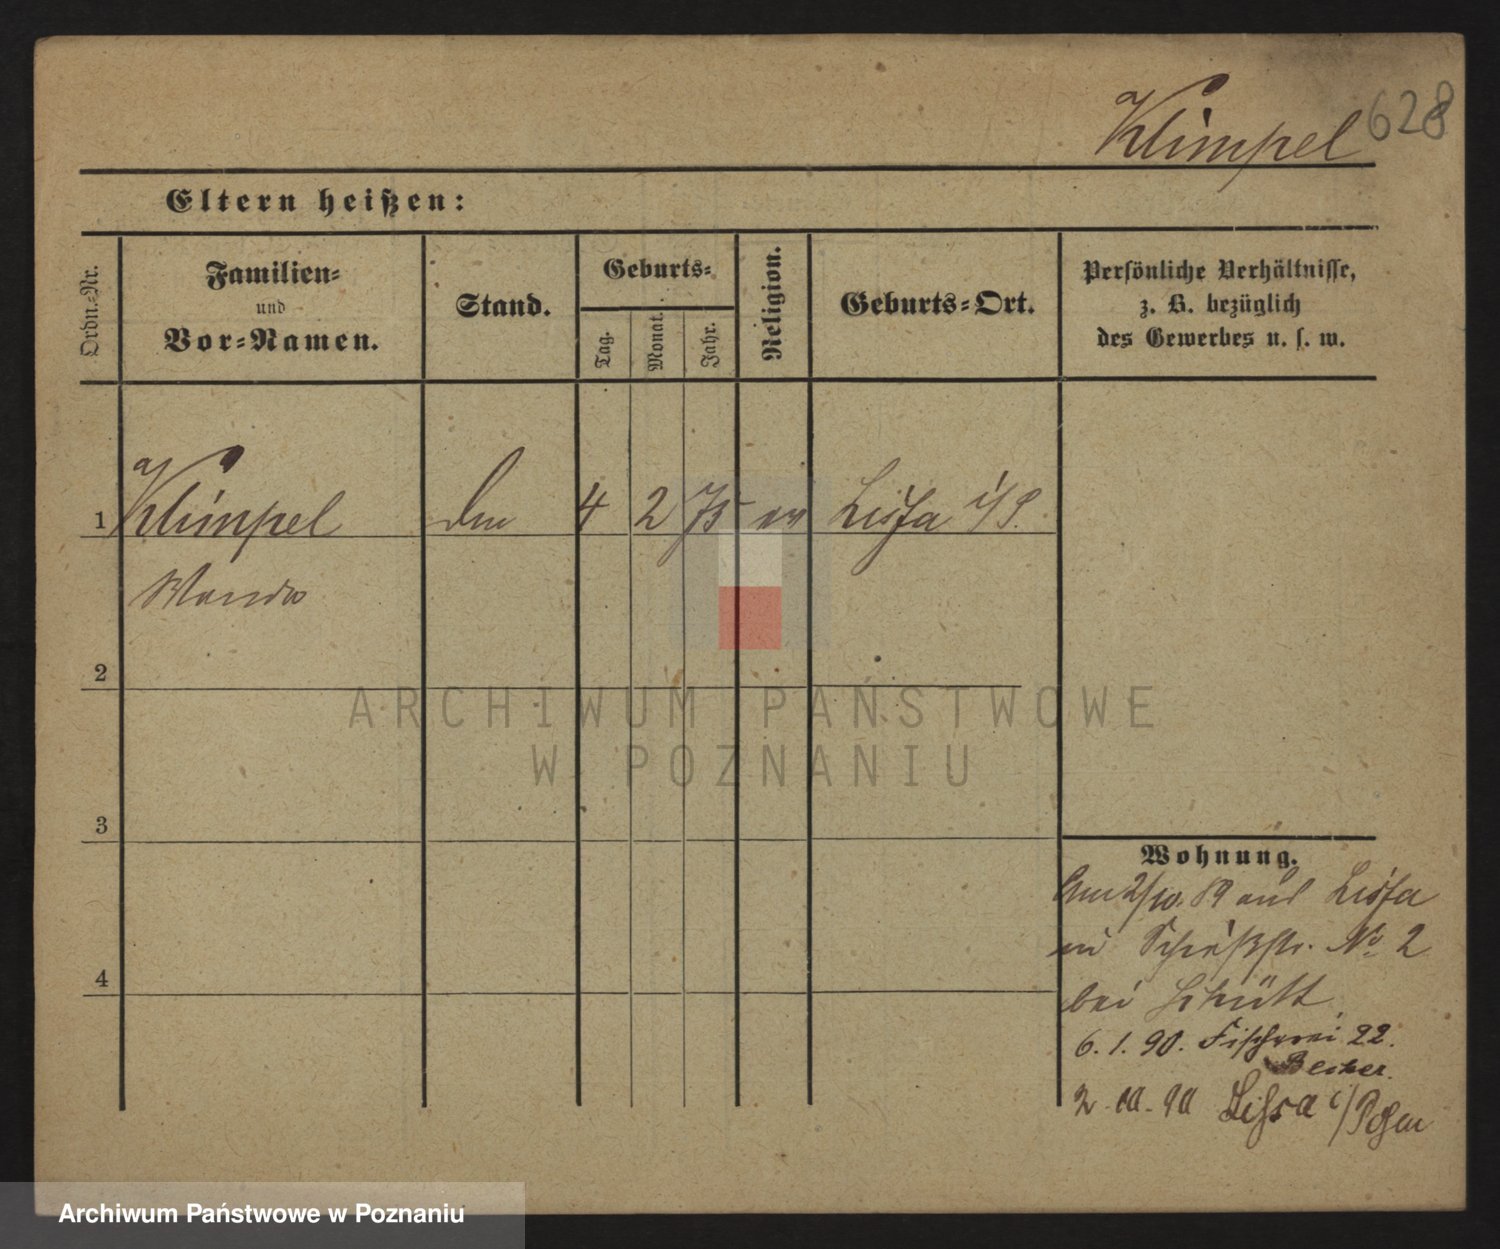 Klimpel 628
Eltern heißen:
Ordn.-Nr.
Familien-
und
Vor-Namen.
Stand.
Geburts-
Tag.
Monat.
Jahr.
Religion.
Geburts-Ort.
Persönliche Verhältnisse,
z. B. bezüglich
des Gewerbes u. s. w.
1 Klimpel 4 2 75 ev Lissa i/P.
Wanda
2
ARCHIWUM PAŃSTWOWE
W POZNANIU
3
Wohnung.
Am 2/10. 89 aus Lissa
No 2
bei Schütt
4
6. 1. 90. Fischerei 22.
Becker.
2. 10. 90 Lissa i/Posen
Archiwum Państwowe w Poznaniu